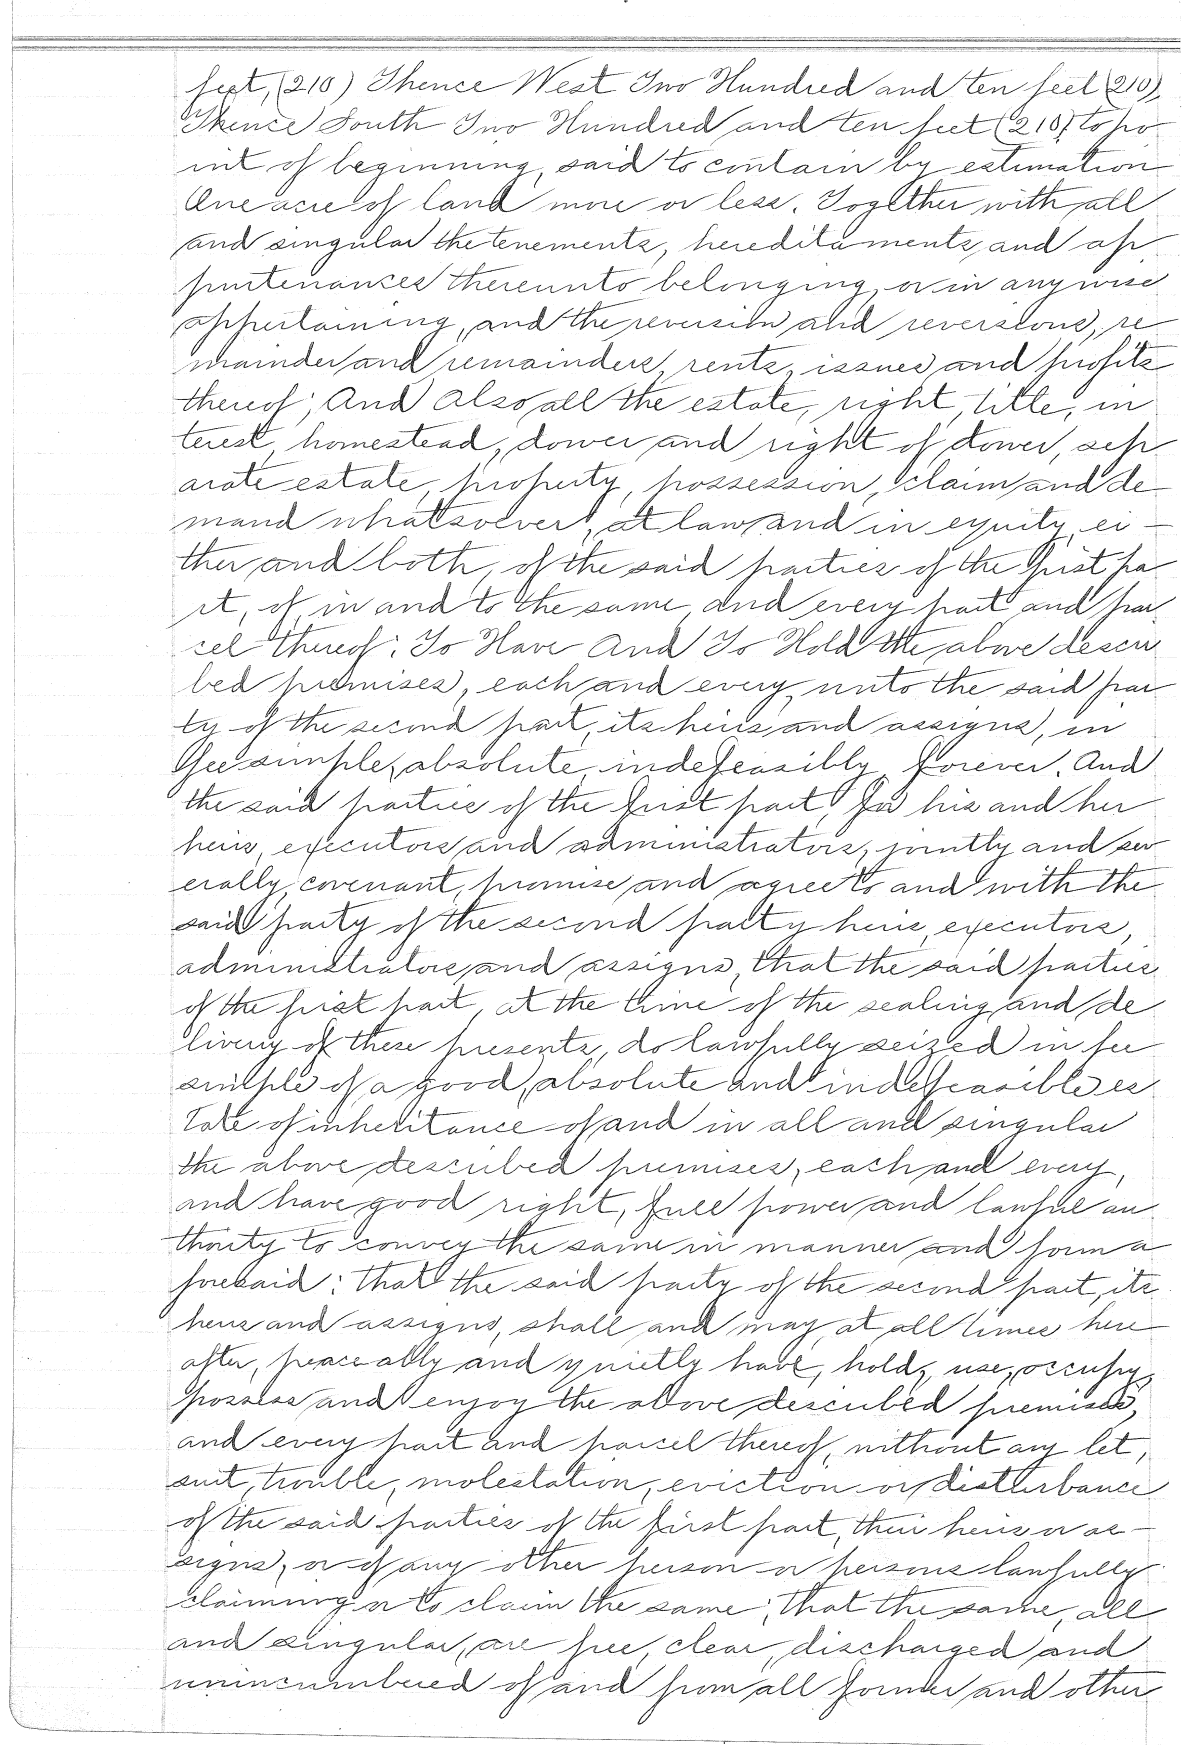 feet, (210) Thence West Two Hundred and ten feet (210),
Thence South Two Hundred and ten feet (210) to po
int of beginning, said to contain by estimation
One acre of land more or less. Together with all
and singular the tenements, hereditaments, and ap
purtenances thereunto belonging, or in any wise
appertaining, and the reversion and reversions, re
mainder and remainders, rents, issues and profits
thereof; And Also all the estate, right, title, in
terest, homestead, dower and right of dower, sep
arate estate, property, possession, claim and de
mand whatsoever, at law and in equity, ei-
ther and both, of the said parties of the first pa
rt, of, in and to the same, and every part and par
cel thereof: To Have And To Hold the above descri
bed premises, each and every, unto the said par
ty of the second part, its heirs and assigns, in
fee simple, absolute, indefeasibly, forever. And
the said parties of the first part, for his and her
heirs, executors and administrators, jointly and sev
erally, covenant, promise and agree to and with the
said party of the second party heirs, executors,
administrators, and assigns, that the said parties
of the first part, at the time of the sealing and de
livery of these presents, do lawfully seized in fee
simple of a good, absolute and indefeasible es
tate of inheritance of and in all and singular
the above described premises, each and every,
and have good right, full power and lawful au
thority to convey the same in manner and form a
foresaid: that the said party of the second part, its
heirs and assigns, shall and may at all times here
after, peaceably and quietly have, hold, use, occupy,
possess and enjoy the above described premises,
and every part and parcel thereof, without any let,
suit, trouble, molestation, eviction or disturbance
of the said parties of the first part, their heirs or as-
signs, or of any other person or persons lawfully
claiming or to claim the same; that the same, all
and singular, are free, clear, discharged and
unincumbered of and from all former and other